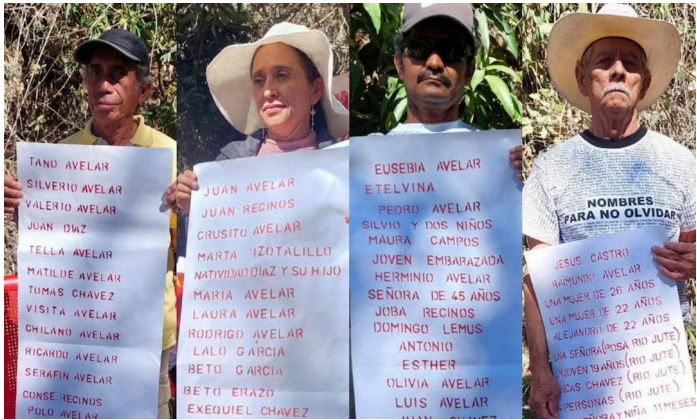 TANO AVELAR
SILVERIO AVELAR
VALERIO AVELAR
JUAN DÍAZ
TELLA AVELAR
MATILDE AVELAR
TOMAS CHAVEZ
VISITA AVELAR
CHILANO AVELAR
RICARDO AVELAR
SERAFIN AVELAR
CONSE RECINOS
POLO AVELAR
JUAN AVELAR
JUAN RECINOS
CRUSITO AVELAR
MARTA TZOTALILLO
NATIVIDAD DÍAZ Y SU HIJO
MARIA AVELAR
LAURA AVELAR
RODRIGO AVELAR
LALO GARCIA
BETO GARCIA
BETO ERAZO
EXEQUIEL CHAVEZ
EUSEBIA AVELAR
ETELVINA
PEDRO AVELAR
SILVIO Y DOS NIÑOS
MAURA CAMPOS
JOVEN EMBARAZADA
HERMINIO AVELAR
SEÑORA DE 45 AÑOS
JOBA RECINOS
DOMINGO LEMUS
ANTONIO
ESTHER
OLIVIA AVELAR
LUIS AVELAR
JUAN CHAVEZ
NOMBRES
PARA NO OLVIDAR
JESUS CASTRO
RAIMUNDO AVELAR
UNA MUJER DE 26 AÑOS
UNA MUJER DE 22 AÑOS
ALEJANDRO DE 22 AÑOS
UNA SEÑORA (POSA RIO JUTE)
UN JOVEN 19 AÑOS (RIO JUTE)
CHAVEZ (RIO JUTE)
PERSONA (RIO JUTE)
NIÑA 11 MESES